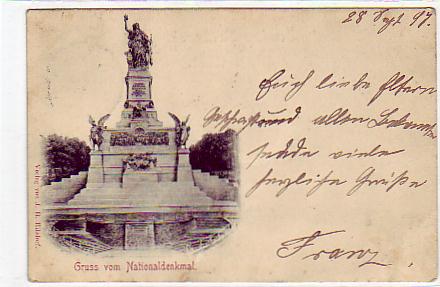 28 Sept 97.
Euch liebe Eltern
und allen
sende viele
herzliche Grüße
Franz
Gruss vom Nationaldenkmal.
Verlag von